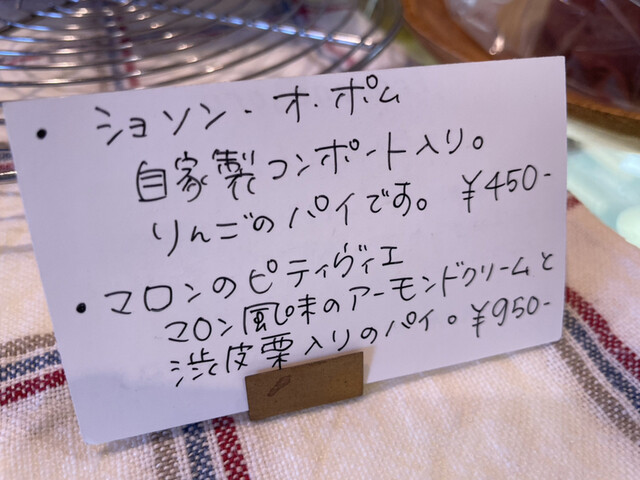 ・ショソン・オ・ポム
自家製コンポート入り。
りんごのパイです。 ¥450-
・マロンのピティヴィエ
マロン風味のアーモンドクリームと
渋皮栗入りのパイ。¥950-